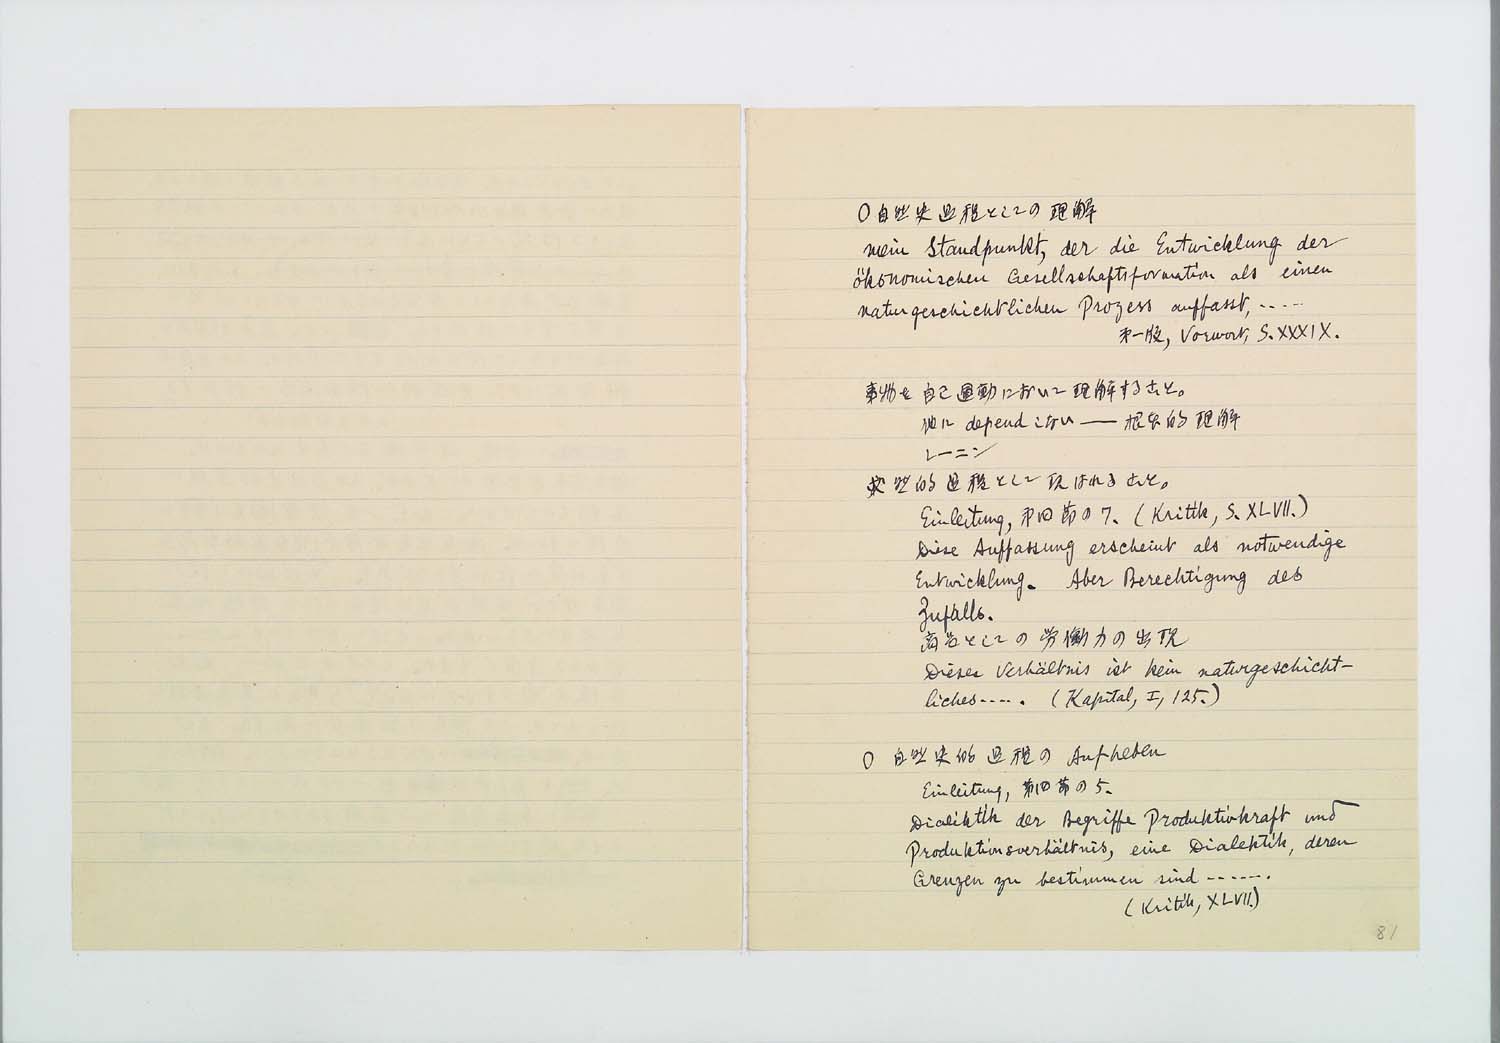 ○自然史過程としての理解
mein Standpunkt, der die Entwicklung der
ökonomischen Gesellschaftsformation als einen
naturgeschichtlichen Prozess auffasst, -----
第一版, Vorwort, S. XXXIX.
事物を自己運動において理解すること。
他に depend しない —— 根本的理解
レーニン
必然的過程として現はれること。
Einleitung, 第四節の7. (Kritik, S. XLVII.)
Diese Auffassung erscheint als notwendige
Entwicklung. Aber Berechtigung des
Zufalls.
商品としての労働力の出現
Dieses Verhältnis ist kein naturgeschicht-
liches----. (Kapital, I, 125.)
○ 自然史的過程の Aufheben
Einleitung, 第四節の5.
Dialektik der Begriffe Produktivkraft und
Produktionsverhältnis, eine Dialektik, deren
Grenzen zu bestimmen sind ------.
(Kritik, XLVII.)
81